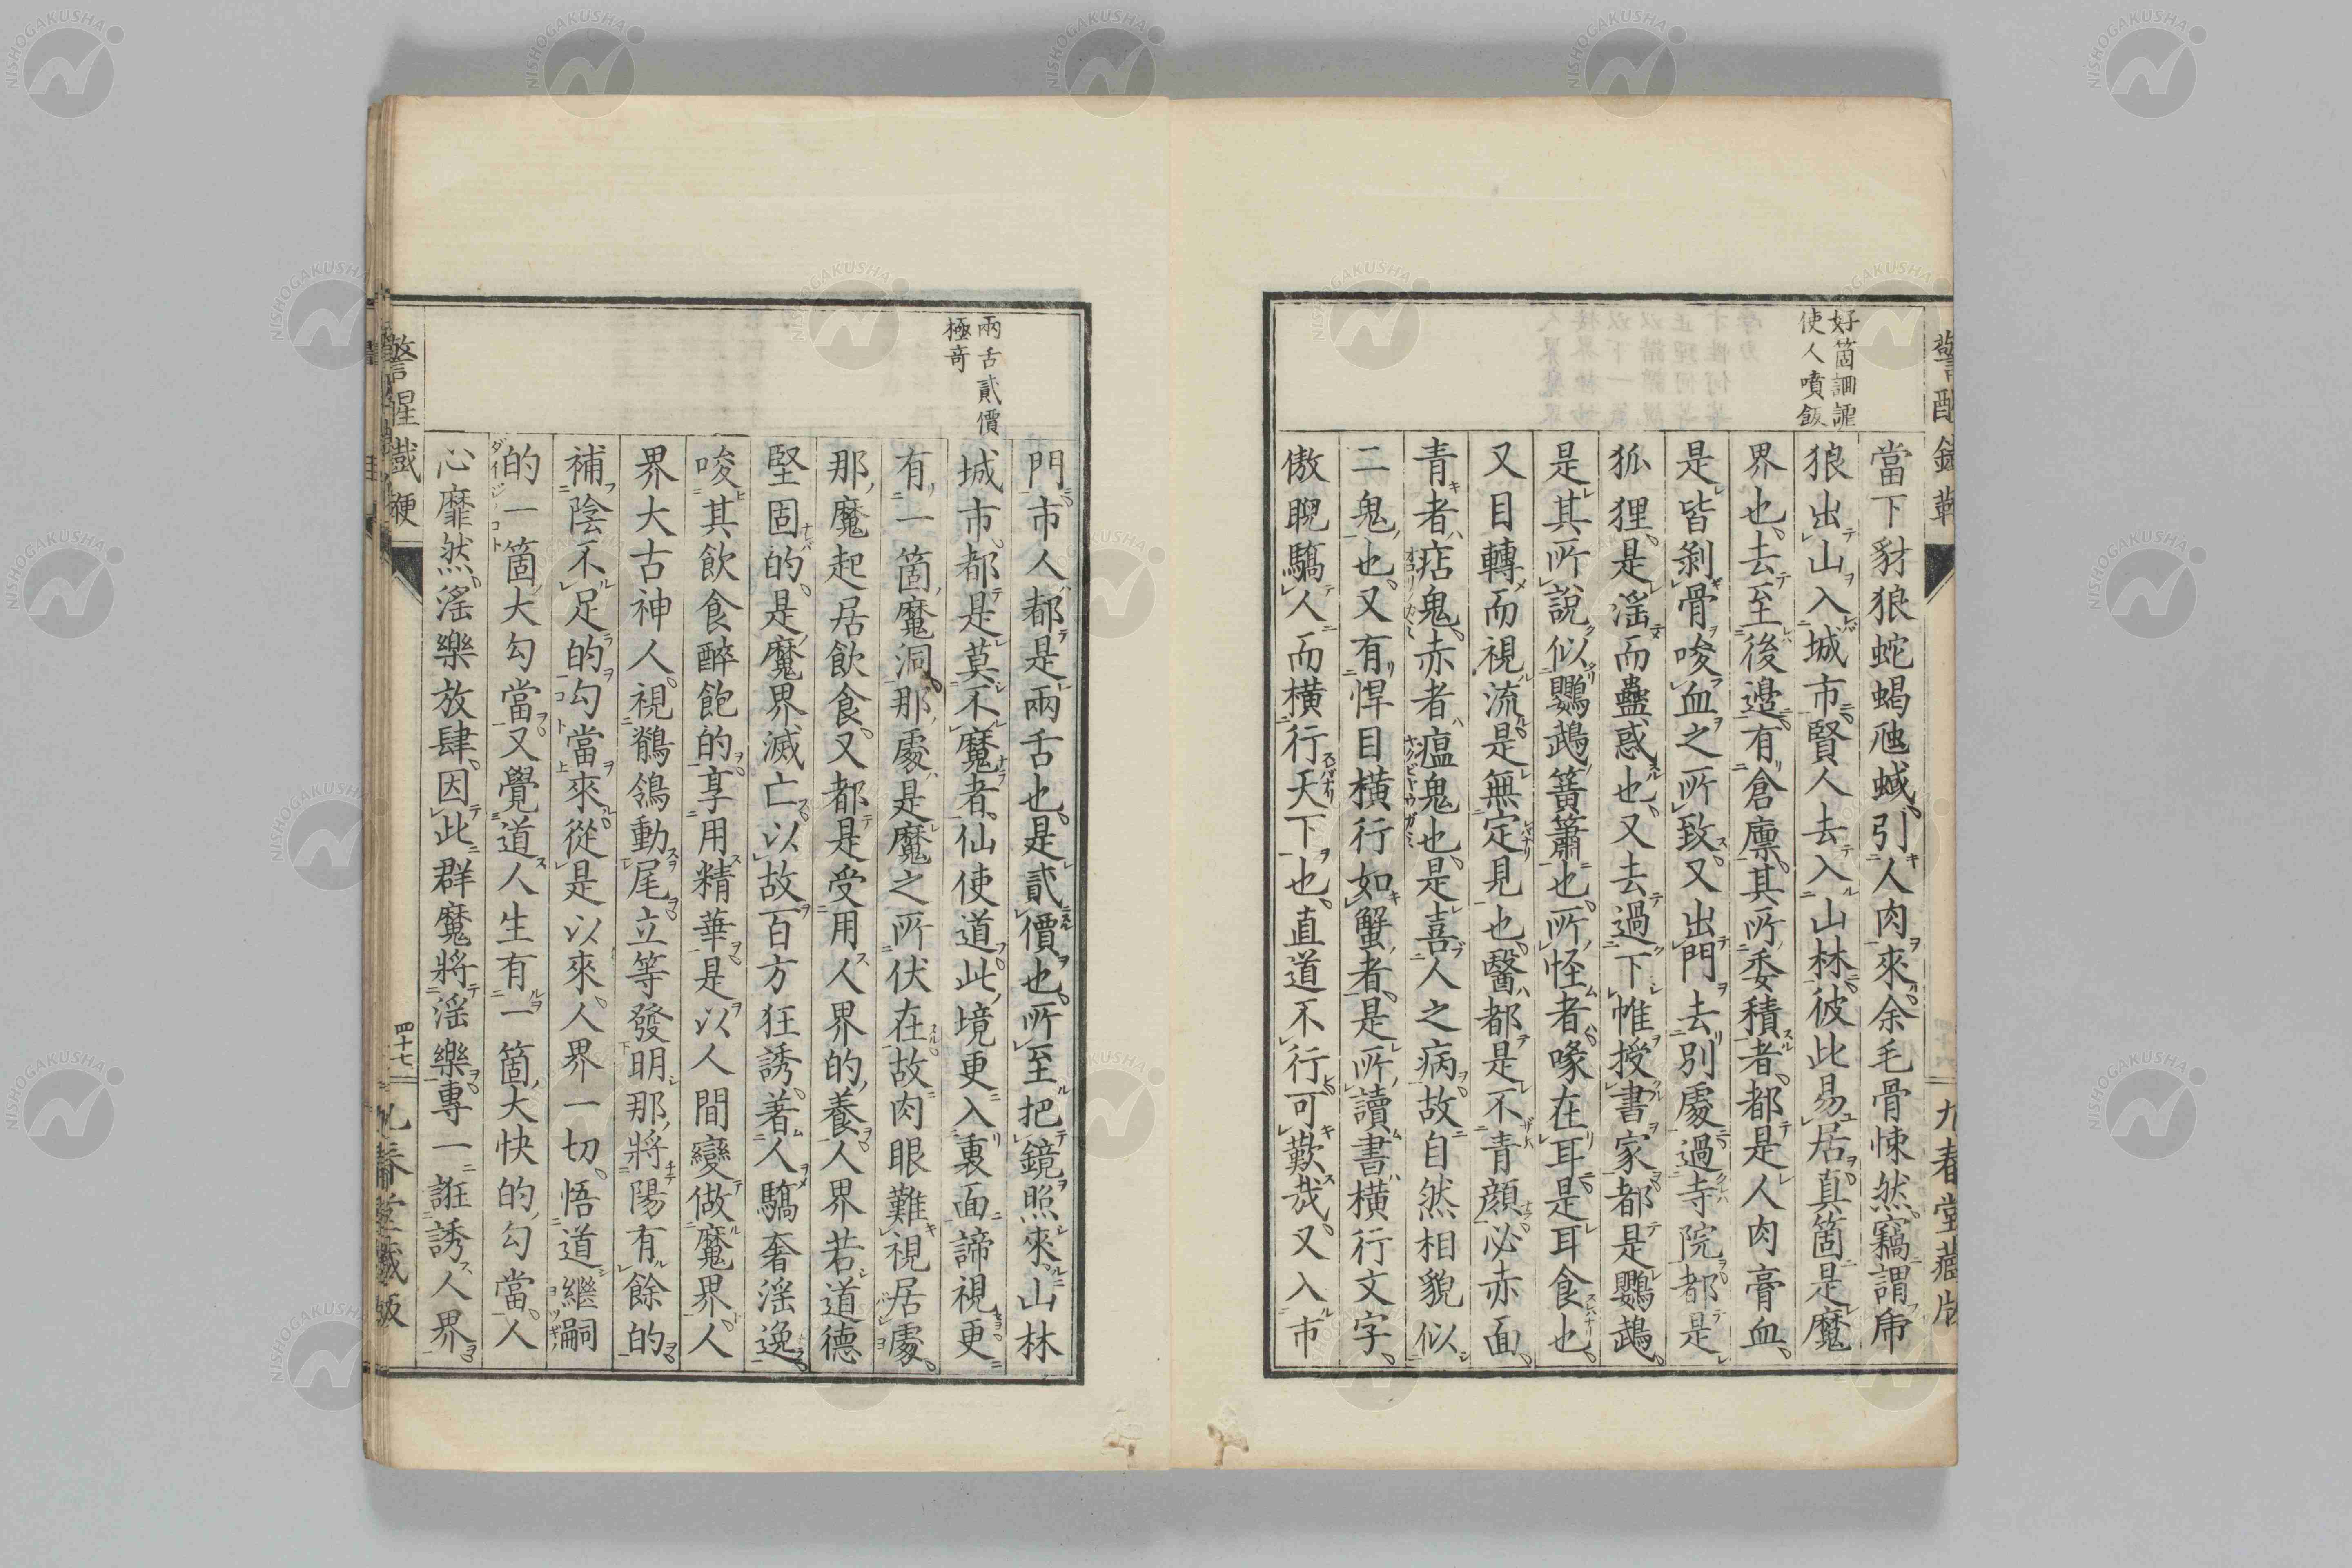 好箇詶謔
使人噴飯
當下豺狼蛇蝎虺蜮引人肉來余毛骨悚然竊謂虎
狼出山入城市賢人去入山林彼此易居真箇是魔
界也去至後邊有倉廪其所委積者都是人肉膏血
是皆剝骨唆血之所致又出門去別處過寺院都是
狐狸是淫而蠱惑也又去過下帷授書家都是鸚鵡
是其所說似鸚鵡簧簫也所怪者喙在耳是耳食也
又目轉而視流是無定見也醫都是不青顔必赤面
青者痁鬼赤者瘟鬼也是喜人之病故自然相貌似
二鬼也又有悍目橫行如蟹者是所讀書橫行文字
傲睨驕人而橫行天下也直道不行可歎哉又入市
九春堂藏
兩舌貳價
極奇
門市人都是兩舌也是貳價也所至把鏡照來山林
城市都是莫不魔者仙使道此境更入裏面諦視更
有一箇魔洞那處是魔之所伏在故肉眼難視居處
那魔起居飲食又都是受用人界的養人界若道德
堅固的是魔界滅亡以故百方狂誘著人驕奢淫逸
唆其飲食醉飽的享用精華是以人間變做魔界人
界大古神人視鶺鴒動尾立等發明那將陽有餘的
補陰不足的勾當來從是以來人界一切悟道繼嗣
的一箇大勾當又覺道人生有一箇大快的勾當人
心靡然淫樂放肆因此群魔將淫樂專一誑誘人界
警醒鐵鞭
四十七